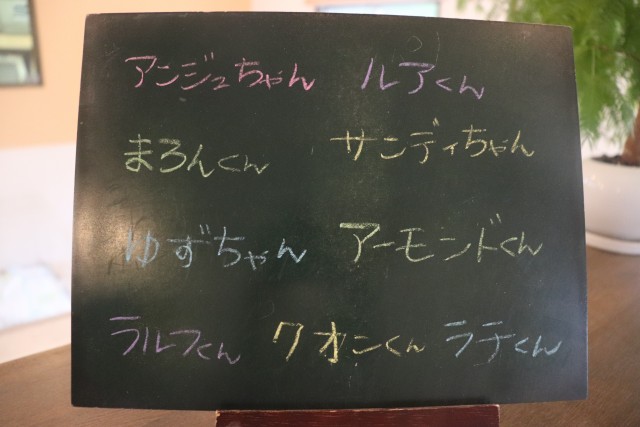 アンジュちゃん ルアくん
まろんくん サンディちゃん
ゆずちゃん アーモンドくん
ラルフくん クオンくん ラテくん